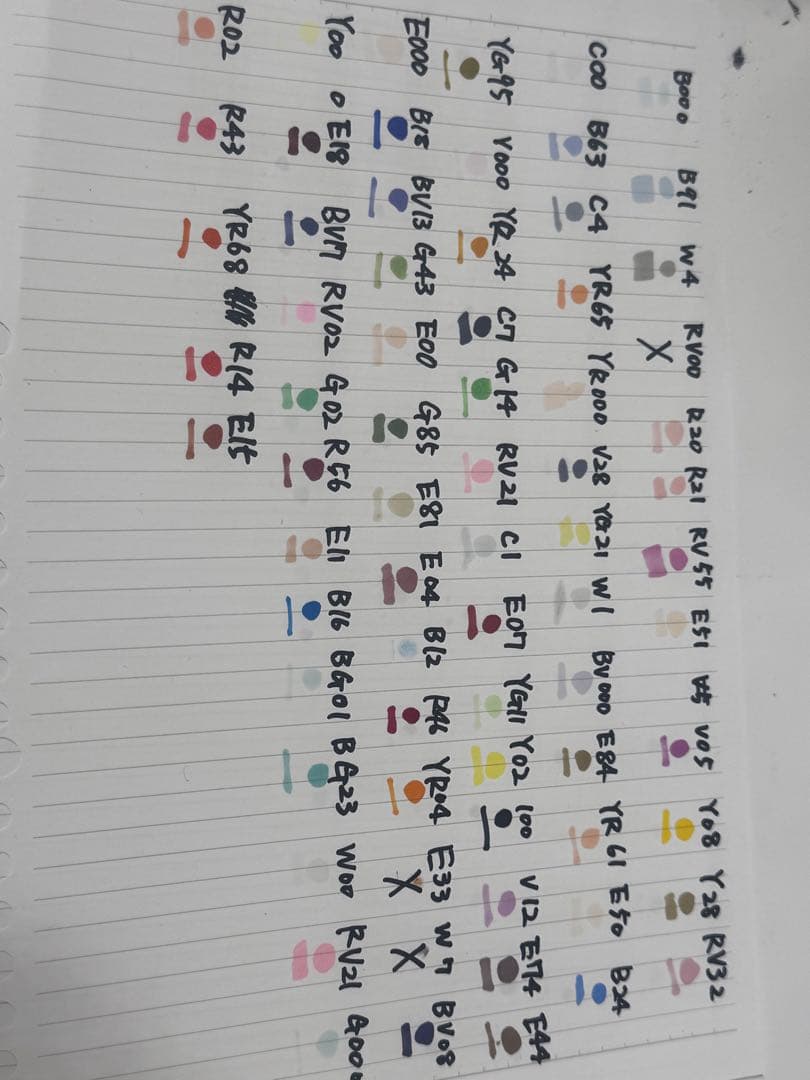 B000 B91 W4 RV00 R20 R21 RV55 E51 V05 Y08 Y28 RV32
C00 B63 C4 YR65 YR000 V28 YG21 W1 BV000 E84 YR61 E50 B24
YG95 V000 YR24 C7 G14 RV21 C1 E07 YG11 Y02 100 V12 E74 E44
E000 B18 BV13 G43 E00 G85 E81 E04 B12 R46 YR04 E33 W7 BV08
Y00 0 E18 BV17 RV02 G02 R56 E11 B16 BG01 BG23 W00 RV21 G000
R02 R43 YR68 R14 E15